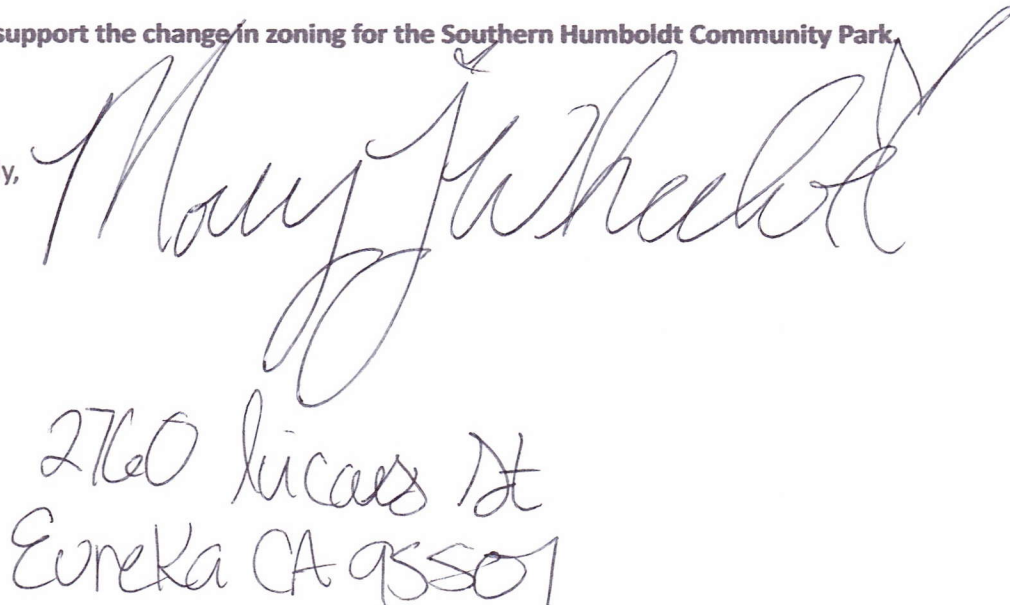 support the change in zoning for the Southern Humboldt Community Park.
y,
Mary J Wheelock
2760 Lucas St
Eureka CA 95501